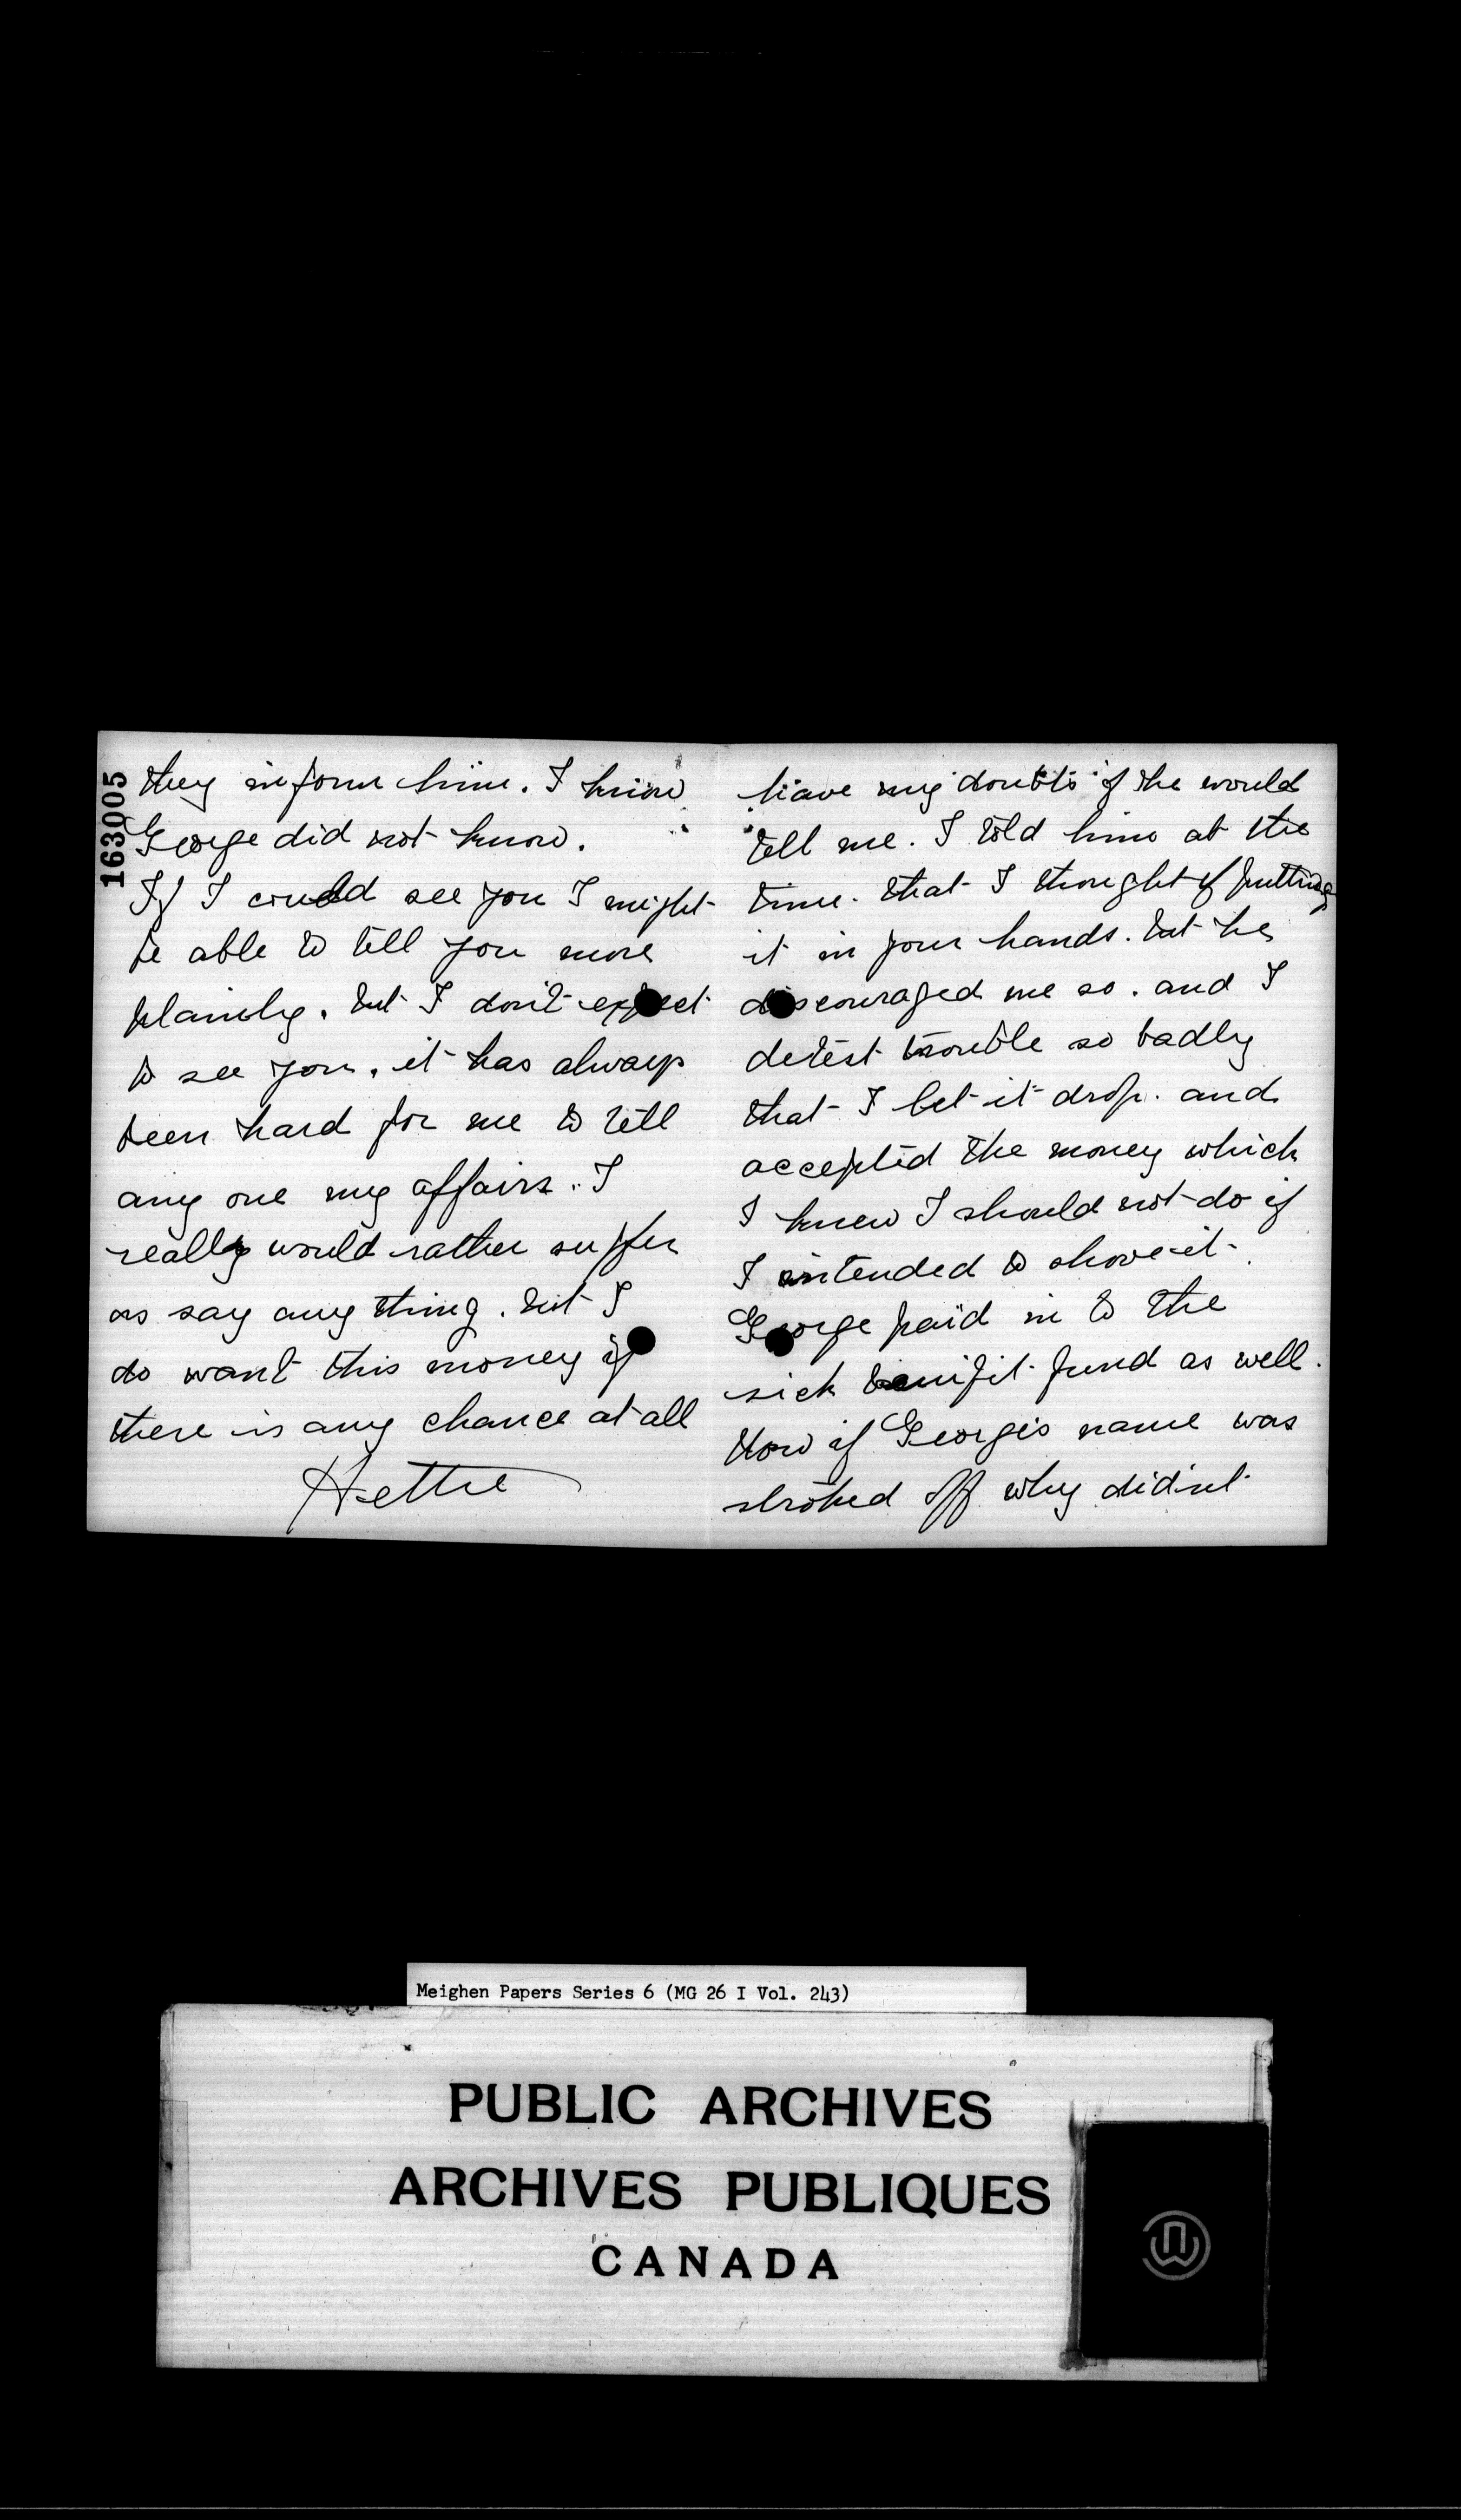 163005
they inform him. I know
George did not know.
If I could see you I might
be able to tell you more
plainly. but I don't expect
to see you. it has always
been hard for me to tell
any one my affairs. I
really would rather suffer
as say any thing. but I
do want this money if
there is any chance at all
Hettie
have my doubts if he would
tell me. I told him at the
time. that I thought of putting
it in your hands. but he
discouraged me so. and I
detest trouble so badly
that I let it drop. and
accepted the money which
I knew I should not do if
I intended to shove it.
George paid in to the
sick benifit fund as well.
Now if Georges name was
stroked off why didnt
Meighen Papers Series 6 (MG 26 I Vol. 243)
PUBLIC ARCHIVES
ARCHIVES PUBLIQUES
CANADA